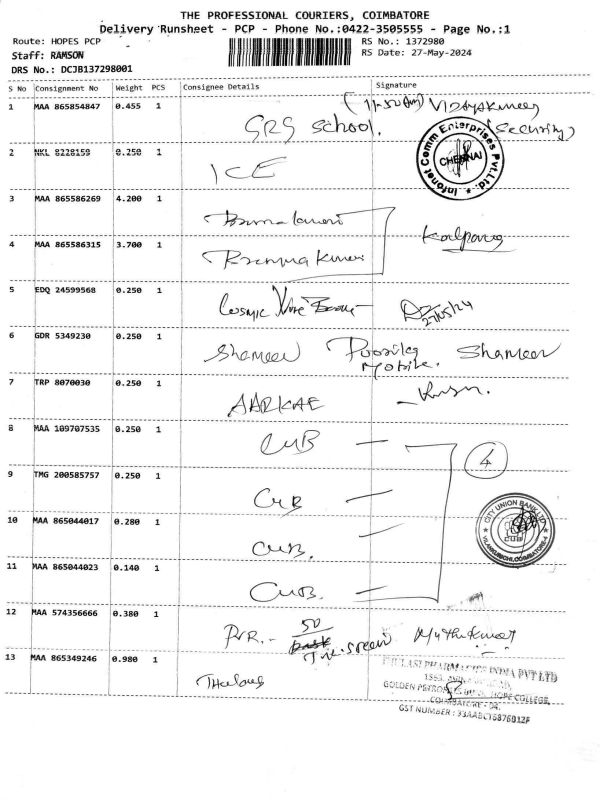 THE PROFESSIONAL COURIERS, COIMBATORE
Delivery Runsheet - PCP - Phone No.:0422-3505555 - Page No.:1
Route: HOPES PCP
RS No.: 1372980
Staff: RAMSON
RS Date: 27-May-2024
DRS No.: DCJB137298001
S No Consignment No Weight PCS Consignee Details Signature
1 MAA 865854847 0.455 1 SRS School. (11-50 Am) (Security)
2 NKL 8228159 0.250 1 ICE
Infonet Comm Enterprises Pvt.Ltd. CHENNAI
3 MAA 865586269 4.200 1
4 MAA 865586315 3.700 1
5 EDQ 24599568 0.250 1 Cosmic 27/05/24
6 GDR 5349230 0.250 1 Shameer Poorvika Mobile. Shameer
7 TRP 8070030 0.250 1 AARKAE
8 MAA 109707535 0.250 1 CUB
4
9 TMG 200585757 0.250 1 CUB
10 MAA 865044017 0.280 1 CUB.
CITY UNION BANK LTD. CUB VILANKURICHI, COIMBATORE-4
11 MAA 865044023 0.140 1 CUB.
12 MAA 574356666 0.380 1 PVR. - 50 Muthukumar
13 MAA 865349246 0.980 1
THULASI PHARMACIES INDIA PVT LTD
HOPE COLLEGE,
COIMBATORE - 04.
GST NUMBER : 33AABCT5876D1ZF